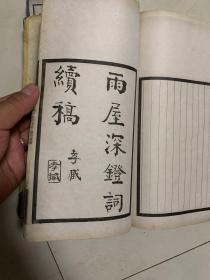 雨屋深鐙詞
續稿
孝臧
孝臧